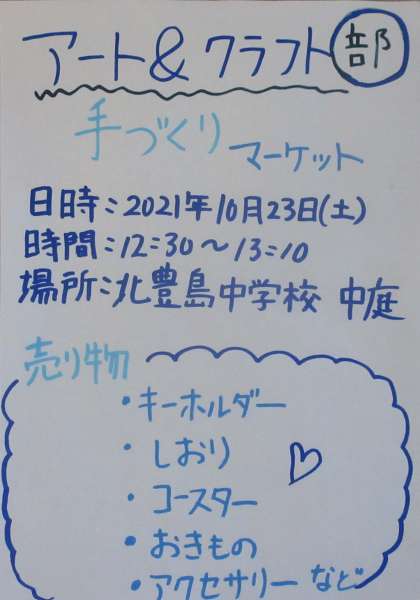 アート&クラフト部
手づくり マーケット
日時:2021年10月23日(土)
時間:12:30〜13:10
場所:北豊島中学校 中庭
売り物
・キーホルダー
・しおり
・コースター
・おきもの
・アクセサリー など